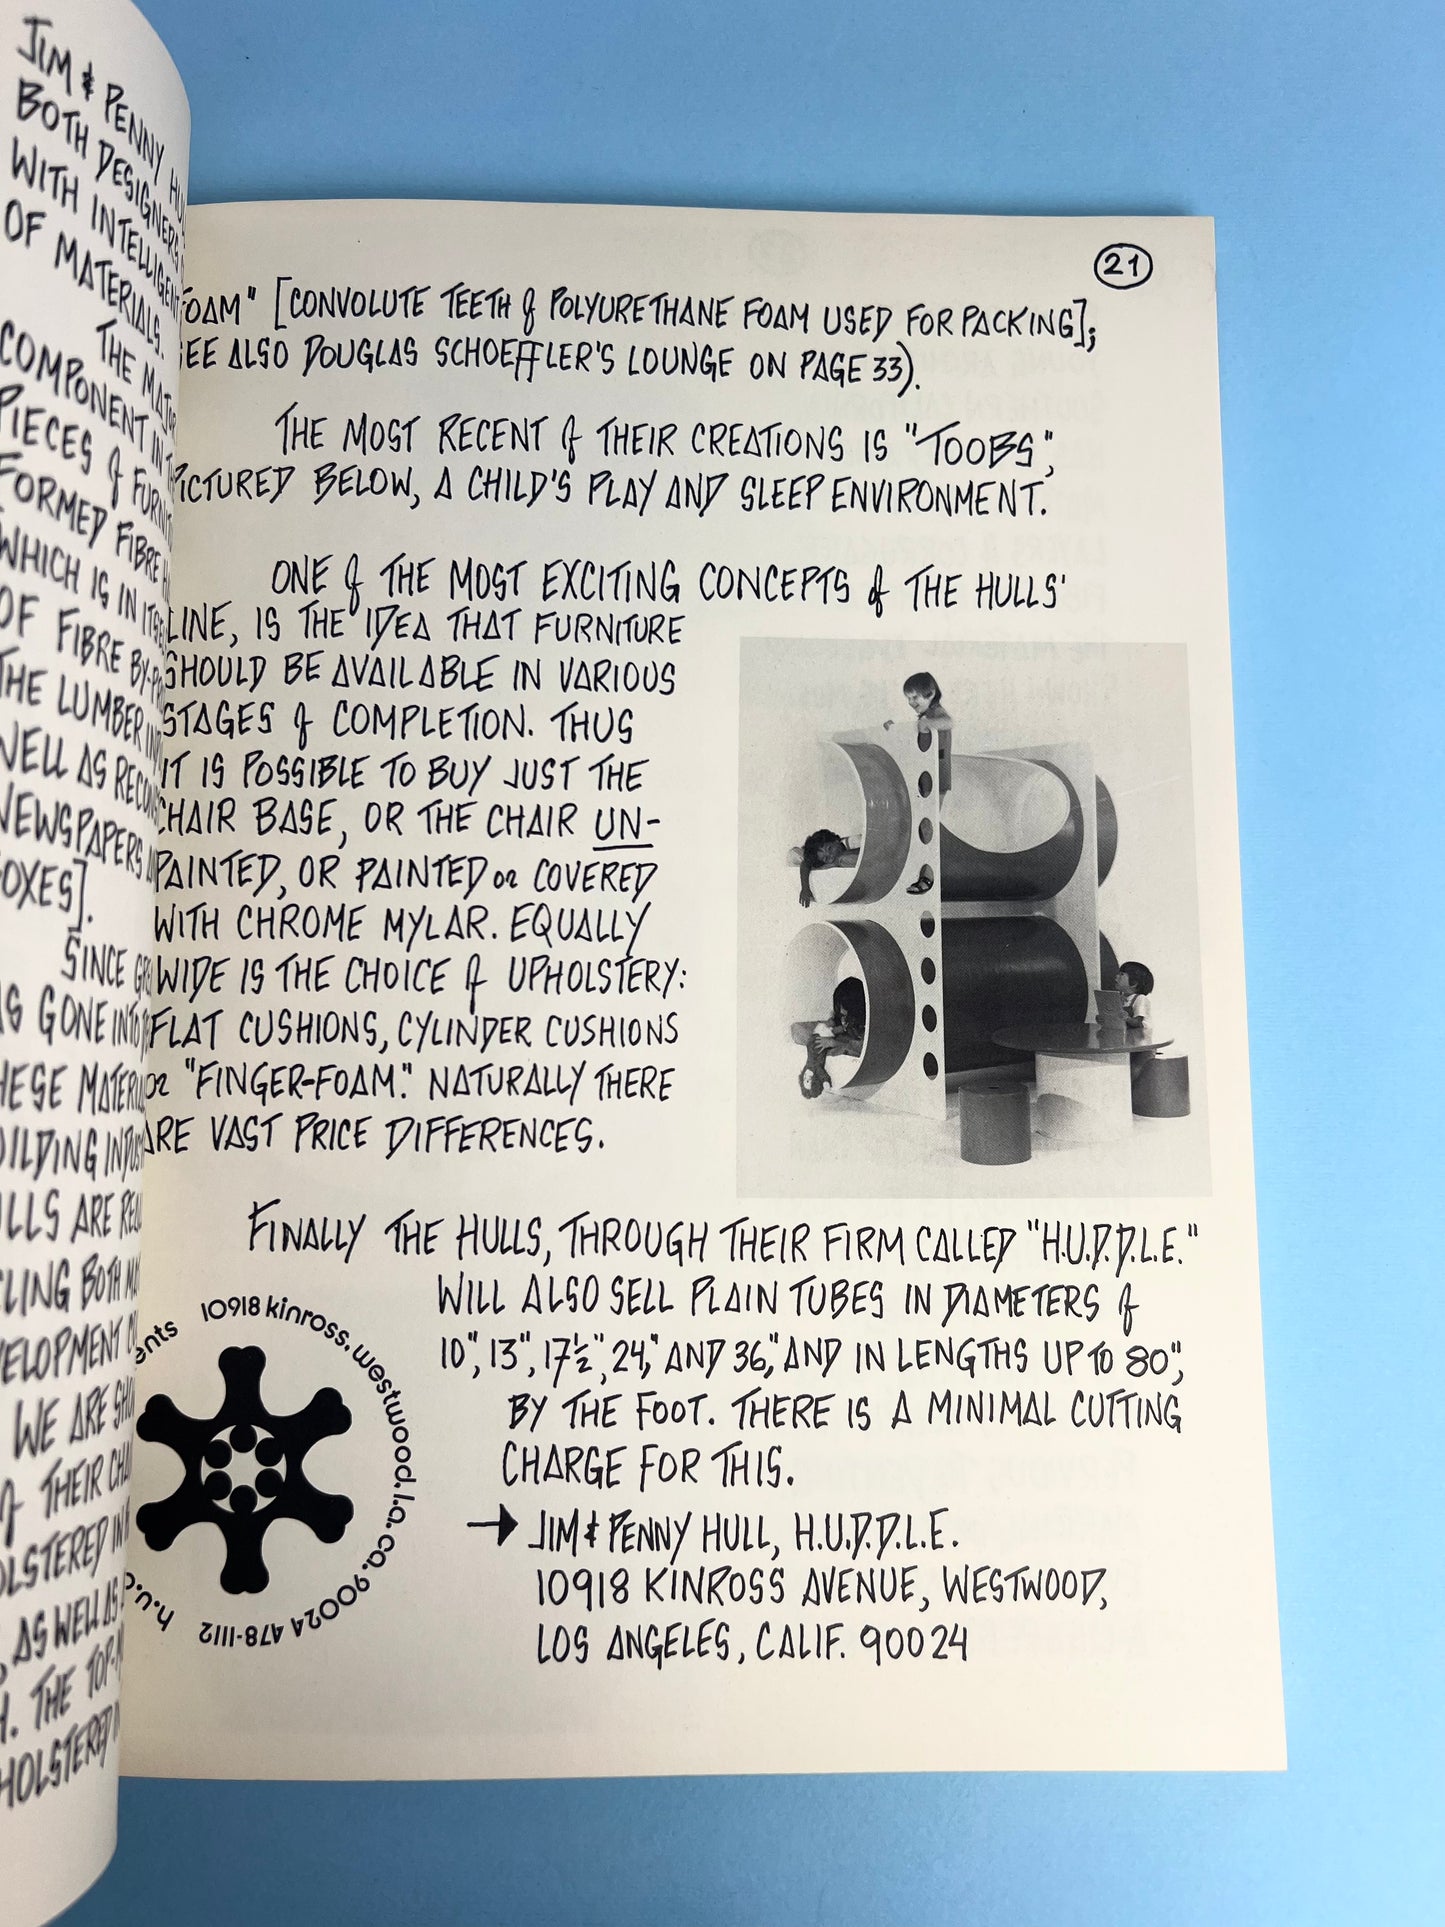 JIM & PENNY
BOTH DESIGNERS
WITH INTELLIGENT
OF MATERIALS.
THE MAJOR
COMPONENT IN
PIECES of
FORMED FIBRE
WHICH IS IN
OF FIBRE
THE LUMBER
AS
NEWSPAPERS
SINCE
GONE INTO
ARE
BOTH
WE ARE
THEIR
AS WELL AS
THE
21
[CONVOLUTE TEETH of POLYURETHANE FOAM USED FOR PACKING];
ALSO DOUGLAS SCHOEFFLER'S LOUNGE ON PAGE 33).
THE MOST RECENT of THEIR CREATIONS IS "TOOBS",
PICTURED BELOW, A CHILD'S PLAY AND SLEEP ENVIRONMENT.
ONE of THE MOST EXCITING CONCEPTS of THE HULLS'
LINE, IS THE IDEA THAT FURNITURE
SHOULD BE AVAILABLE IN VARIOUS
STAGES of COMPLETION. THUS
IT IS POSSIBLE TO BUY JUST THE
CHAIR BASE, OR THE CHAIR UN-
PAINTED, OR PAINTED or COVERED
WITH CHROME MYLAR. EQUALLY
WIDE IS THE CHOICE of UPHOLSTERY:
FLAT CUSHIONS, CYLINDER CUSHIONS
or "FINGER-FOAM." NATURALLY THERE
ARE VAST PRICE DIFFERENCES.
FINALLY THE HULLS, THROUGH THEIR FIRM CALLED "H.U.D.D.L.E."
WILL ALSO SELL PLAIN TUBES IN DIAMETERS of
10", 13", 17½", 24", AND 36", AND IN LENGTHS UP TO 80",
BY THE FOOT. THERE IS A MINIMAL CUTTING
CHARGE FOR THIS.
→ JIM & PENNY HULL, H.U.D.D.L.E.
10918 KINROSS AVENUE, WESTWOOD,
LOS ANGELES, CALIF. 90024
10918 kinross. westwood. l.a. ca. 90024 478-1112